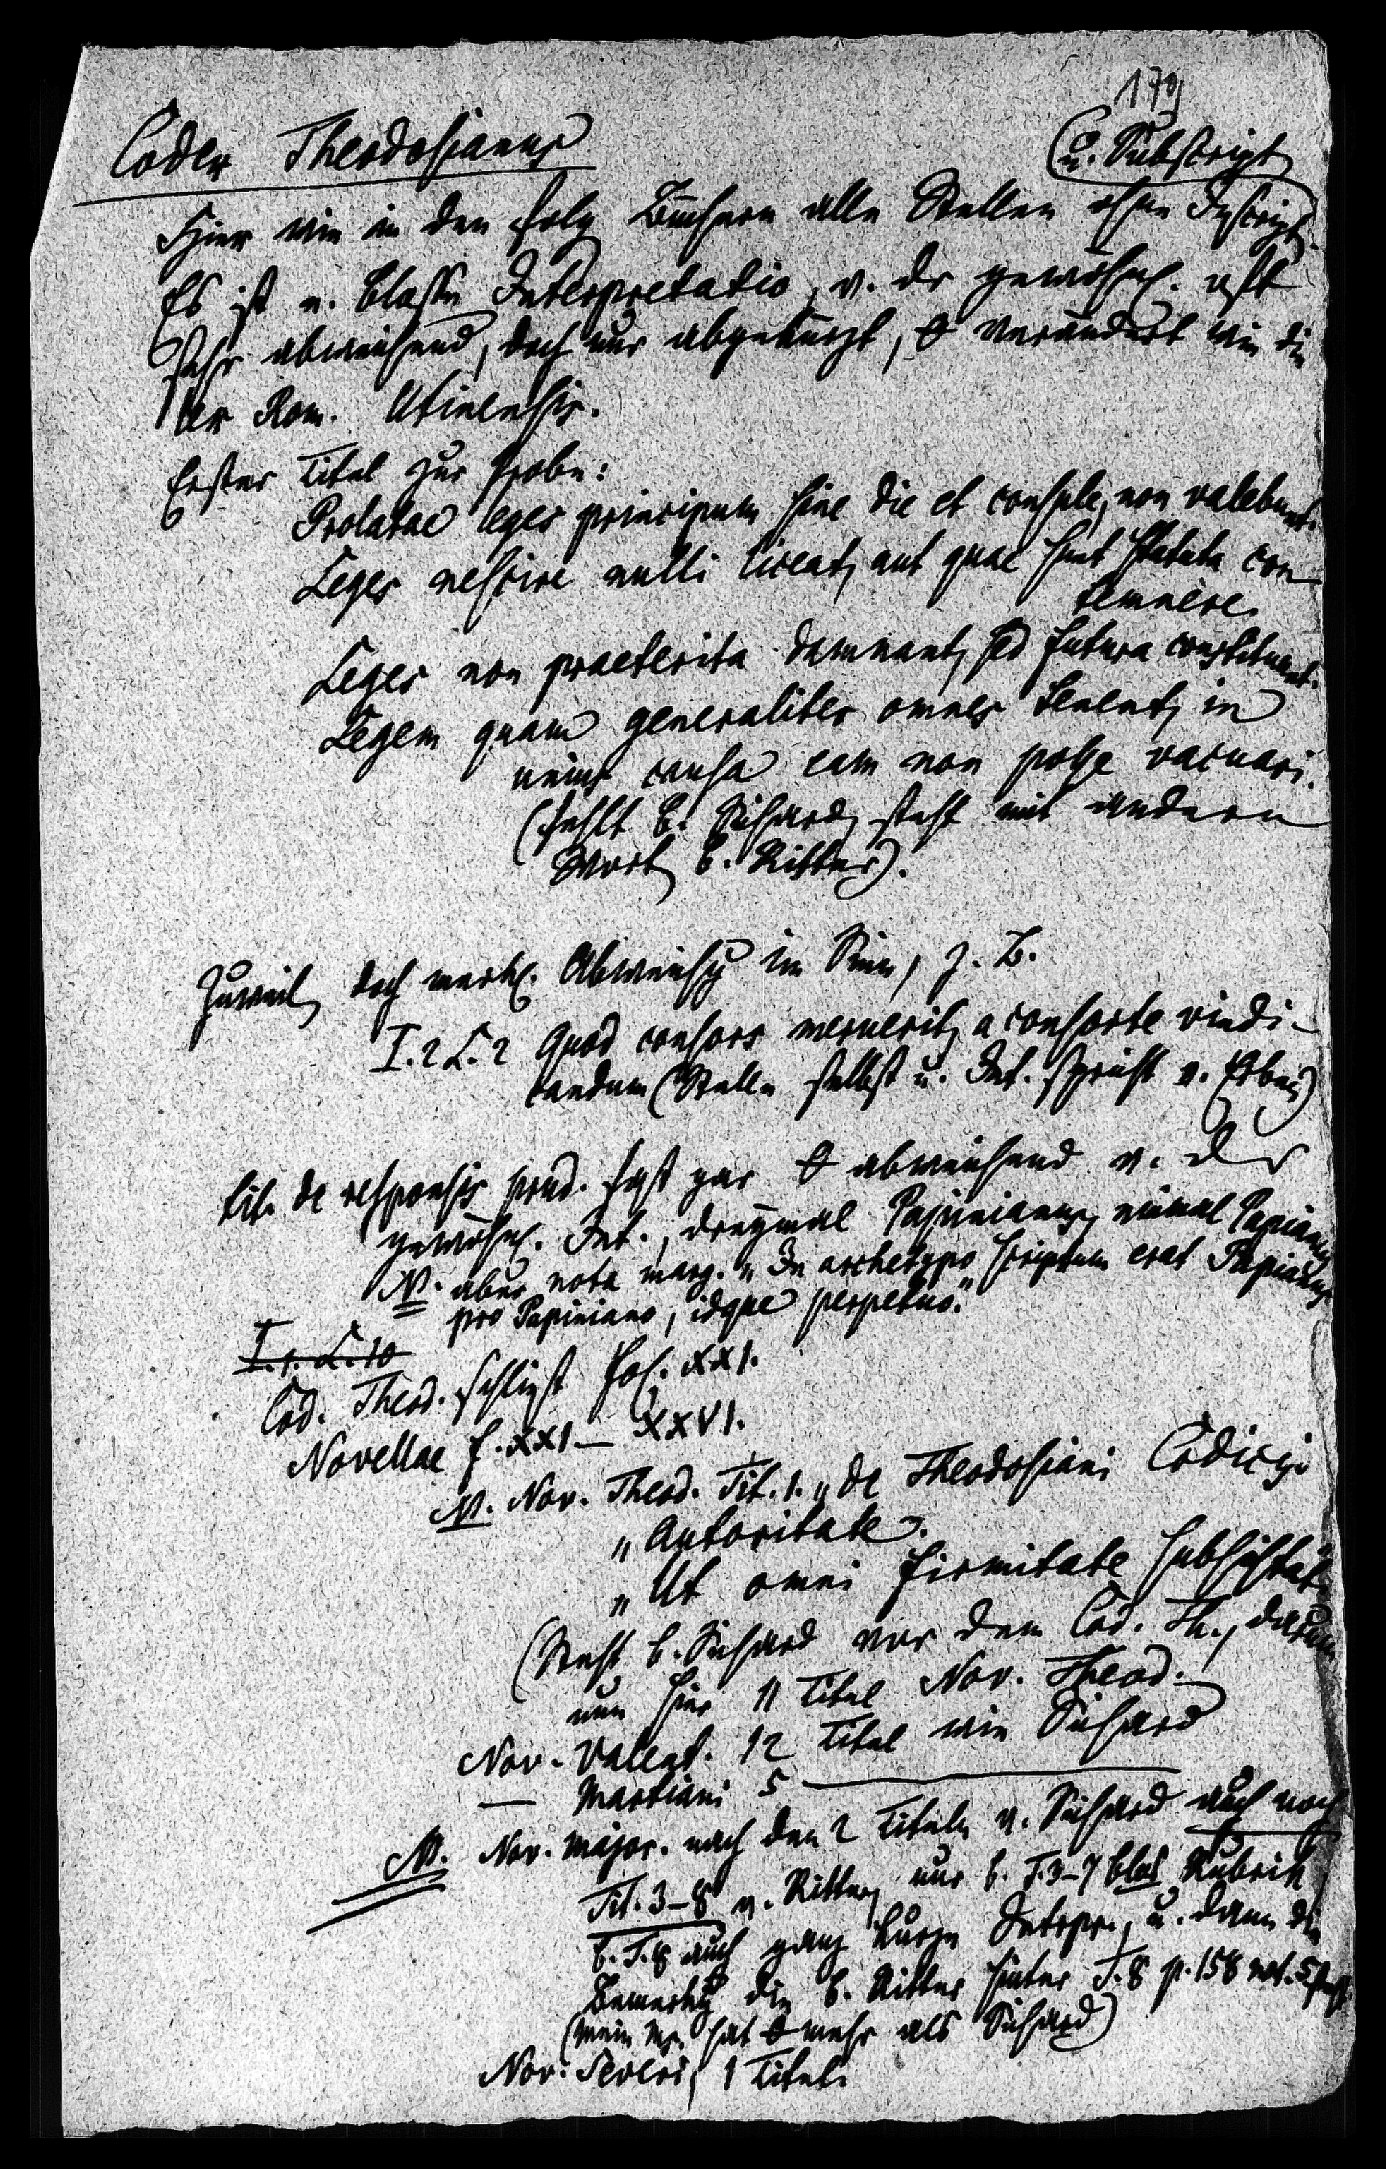 179
Codex Theodosianus
(u. Subscript.
Hier wie in den folg. Büchern alle Stellen ohne Inscript.
Es ist e. blosse Interpretatio, v. der gewöhnl. oft
sehr abweichend, doch nur abgekürzt, verändert wie die
lex Rom. Utinensis.
Erster Titel zur Probe:
Prolatae leges principum sine die et consule, non valebunt.
Leges nescire nulli liceat, aut quae sunt statuta con-
temnere.
Leges non praeterita damnant, sed futura constituunt.
Legem quam generaliter omnes tenent, in
unius causa eam non posse vacuari.
(fehlt b. Sichard, steht mit andern
Wort. b. Ritter).
Zuweil. doch merkl. Abweichg im Sinn, z. B.
I. 2 L. 2 Quod consors meruerit, a consorte vindi-
candum (Stelle selbst u. Int. spricht v. Erben)
tit. de responsis prud. fast gar abweichend v. der
gewöhnl. Int., dreymal Papinianus, einmal Papianus
N. aber nota marg. „In archetypo scriptum erat Papianus
pro Papiniano, idque perpetuo."
T. 1. L. 10
Cod. Theod. schliesst fol. XXI.
Novellae f. XXI — XXVI.
N. Nov. Theod. Tit. 1. „de Theodosiani Codicis
„Autoritate.
„Ut omni firmitate subsistat
(Steht b. Sichard vor dem Cod. Th., darum
nun hier 11 Titel Nov. Theod.
Nov. Valent. 12 Titel wie Sichard
— Martiani 5 —
N. Nov. Major. nach den 2 Titeln v. Sichard auch noch
Tit. 3–8 v. Ritter, nur b. T. 3–7 blos Rubrik,
b. T. 8 auch ganz kurze Interpr., u. dann die
Bemerkg die b. Ritter hinter T. 8 p. 158 not. 5 steht.
(mein Ms. hat mehr als Sichard)
Nov. Severi, 1 Titel.